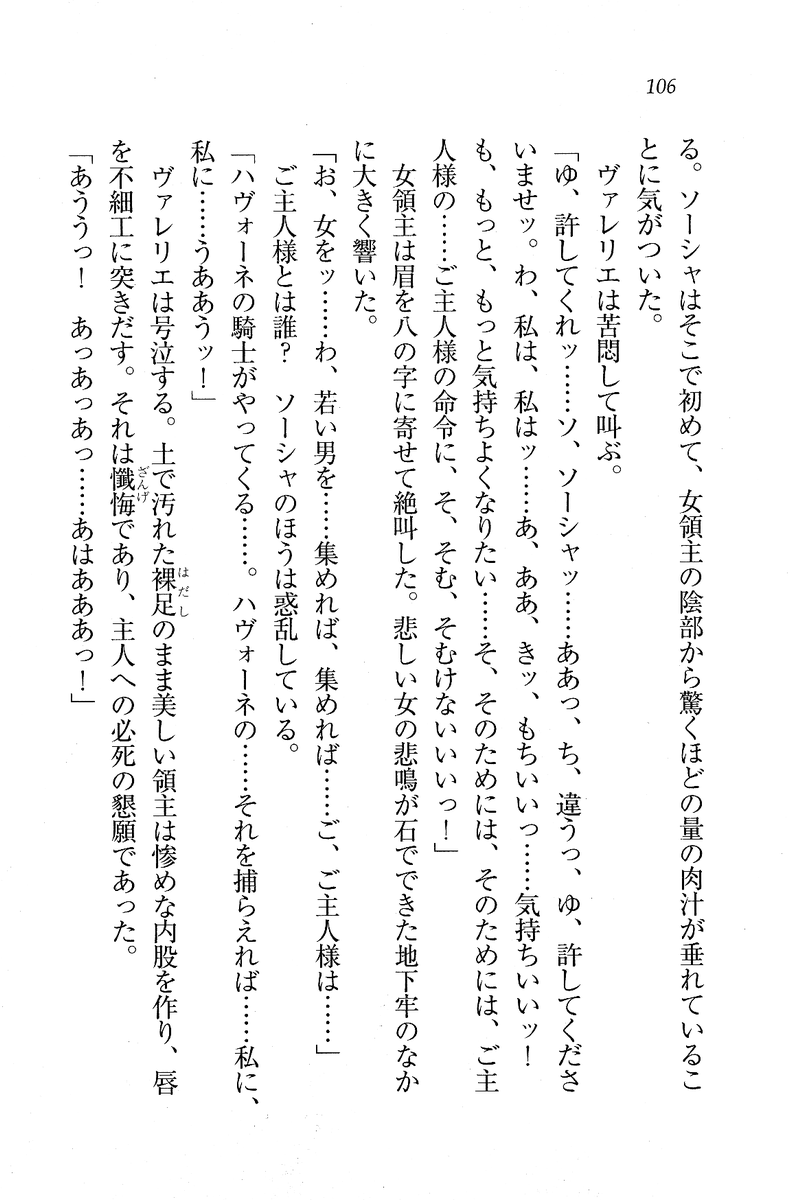 106
る。ソーシャはそこで初めて、女領主の陰部から驚くほどの量の肉汁が垂れているこ
とに気がついた。
　ヴァレリエは苦悶して叫ぶ。
「ゆ、許してくれッ……ソ、ソーシャッ……ああっ、ち、違うっ、ゆ、許してくださ
いませッ。わ、私は、私はッ……あ、ああ、きッ、もちいいっ……気持ちいいッ！
も、もっと、もっと気持ちよくなりたい……そ、そのためには、そのためには、ご主
人様の……ご主人様の命令に、そ、そむ、そむけないいいっ！」
　女領主は眉を八の字に寄せて絶叫した。悲しい女の悲鳴が石でできた地下牢のなか
に大きく響いた。
「お、女をッ……わ、若い男を……集めれば、集めれば……ご、ご主人様は……」
　ご主人様とは誰？　ソーシャのほうは惑乱している。
「ハヴォーネの騎士がやってくる……。ハヴォーネの……それを捕らえれば……私に、
私に……うああうッ！」
　ヴァレリエは号泣する。土で汚れた裸足のまま美しい領主は惨めな内股を作り、唇
はだし
を不細工に突きだす。それは懺悔であり、主人への必死の懇願であった。
ざんげ
「あううっ！　あっあっあっ……あはあああっ！」